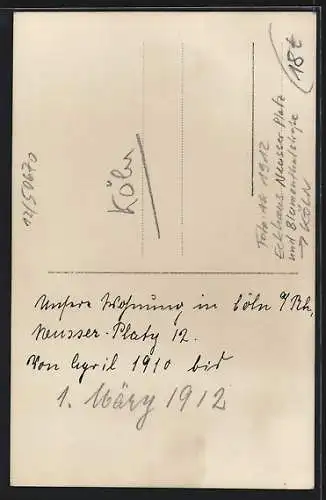 18€
Köln
12/50670
Foto ca 1912
Eckhaus Neusser-Platz
und Blumenthalstraße
→ KÖLN
Unsere Wohnung in Cöln a/Rh,
Neusser-Platz 12.
Von April 1910 bis
1. März 1912